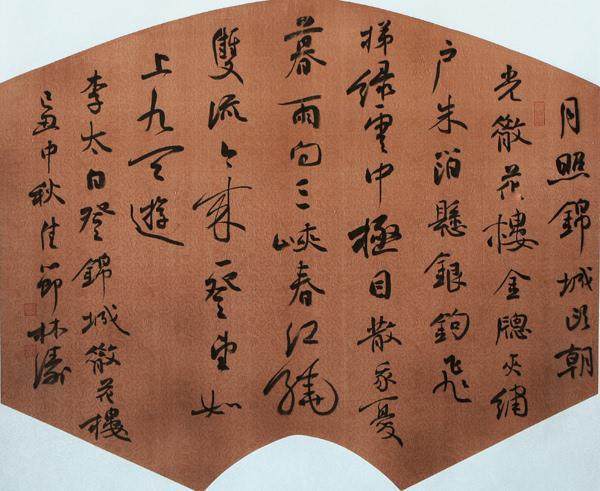 日照錦城頭朝
光散花樓金牕夾繡
户朱泊懸銀鉤飛
梯綠雲中極目散我憂
暮雨向三峽春江繞
雙流今來一登望如
上九天遊
李太白登錦城散花樓
己丑中秋佳節林濤